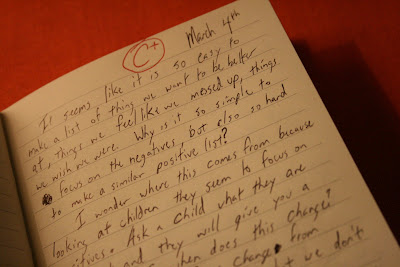 C+
March 4th
It seems like it is so easy to
make a list of thing we want to be better
at, things we feel like we messed up, things
we wish we were. Why is it so simple to
focus on the negatives, but also so hard
to make a similar positive list?
I wonder where this comes from because
looking at children they seem to focus on
itives. Ask a child what they are
and they will give you a
when does this change?
change from
t we don't